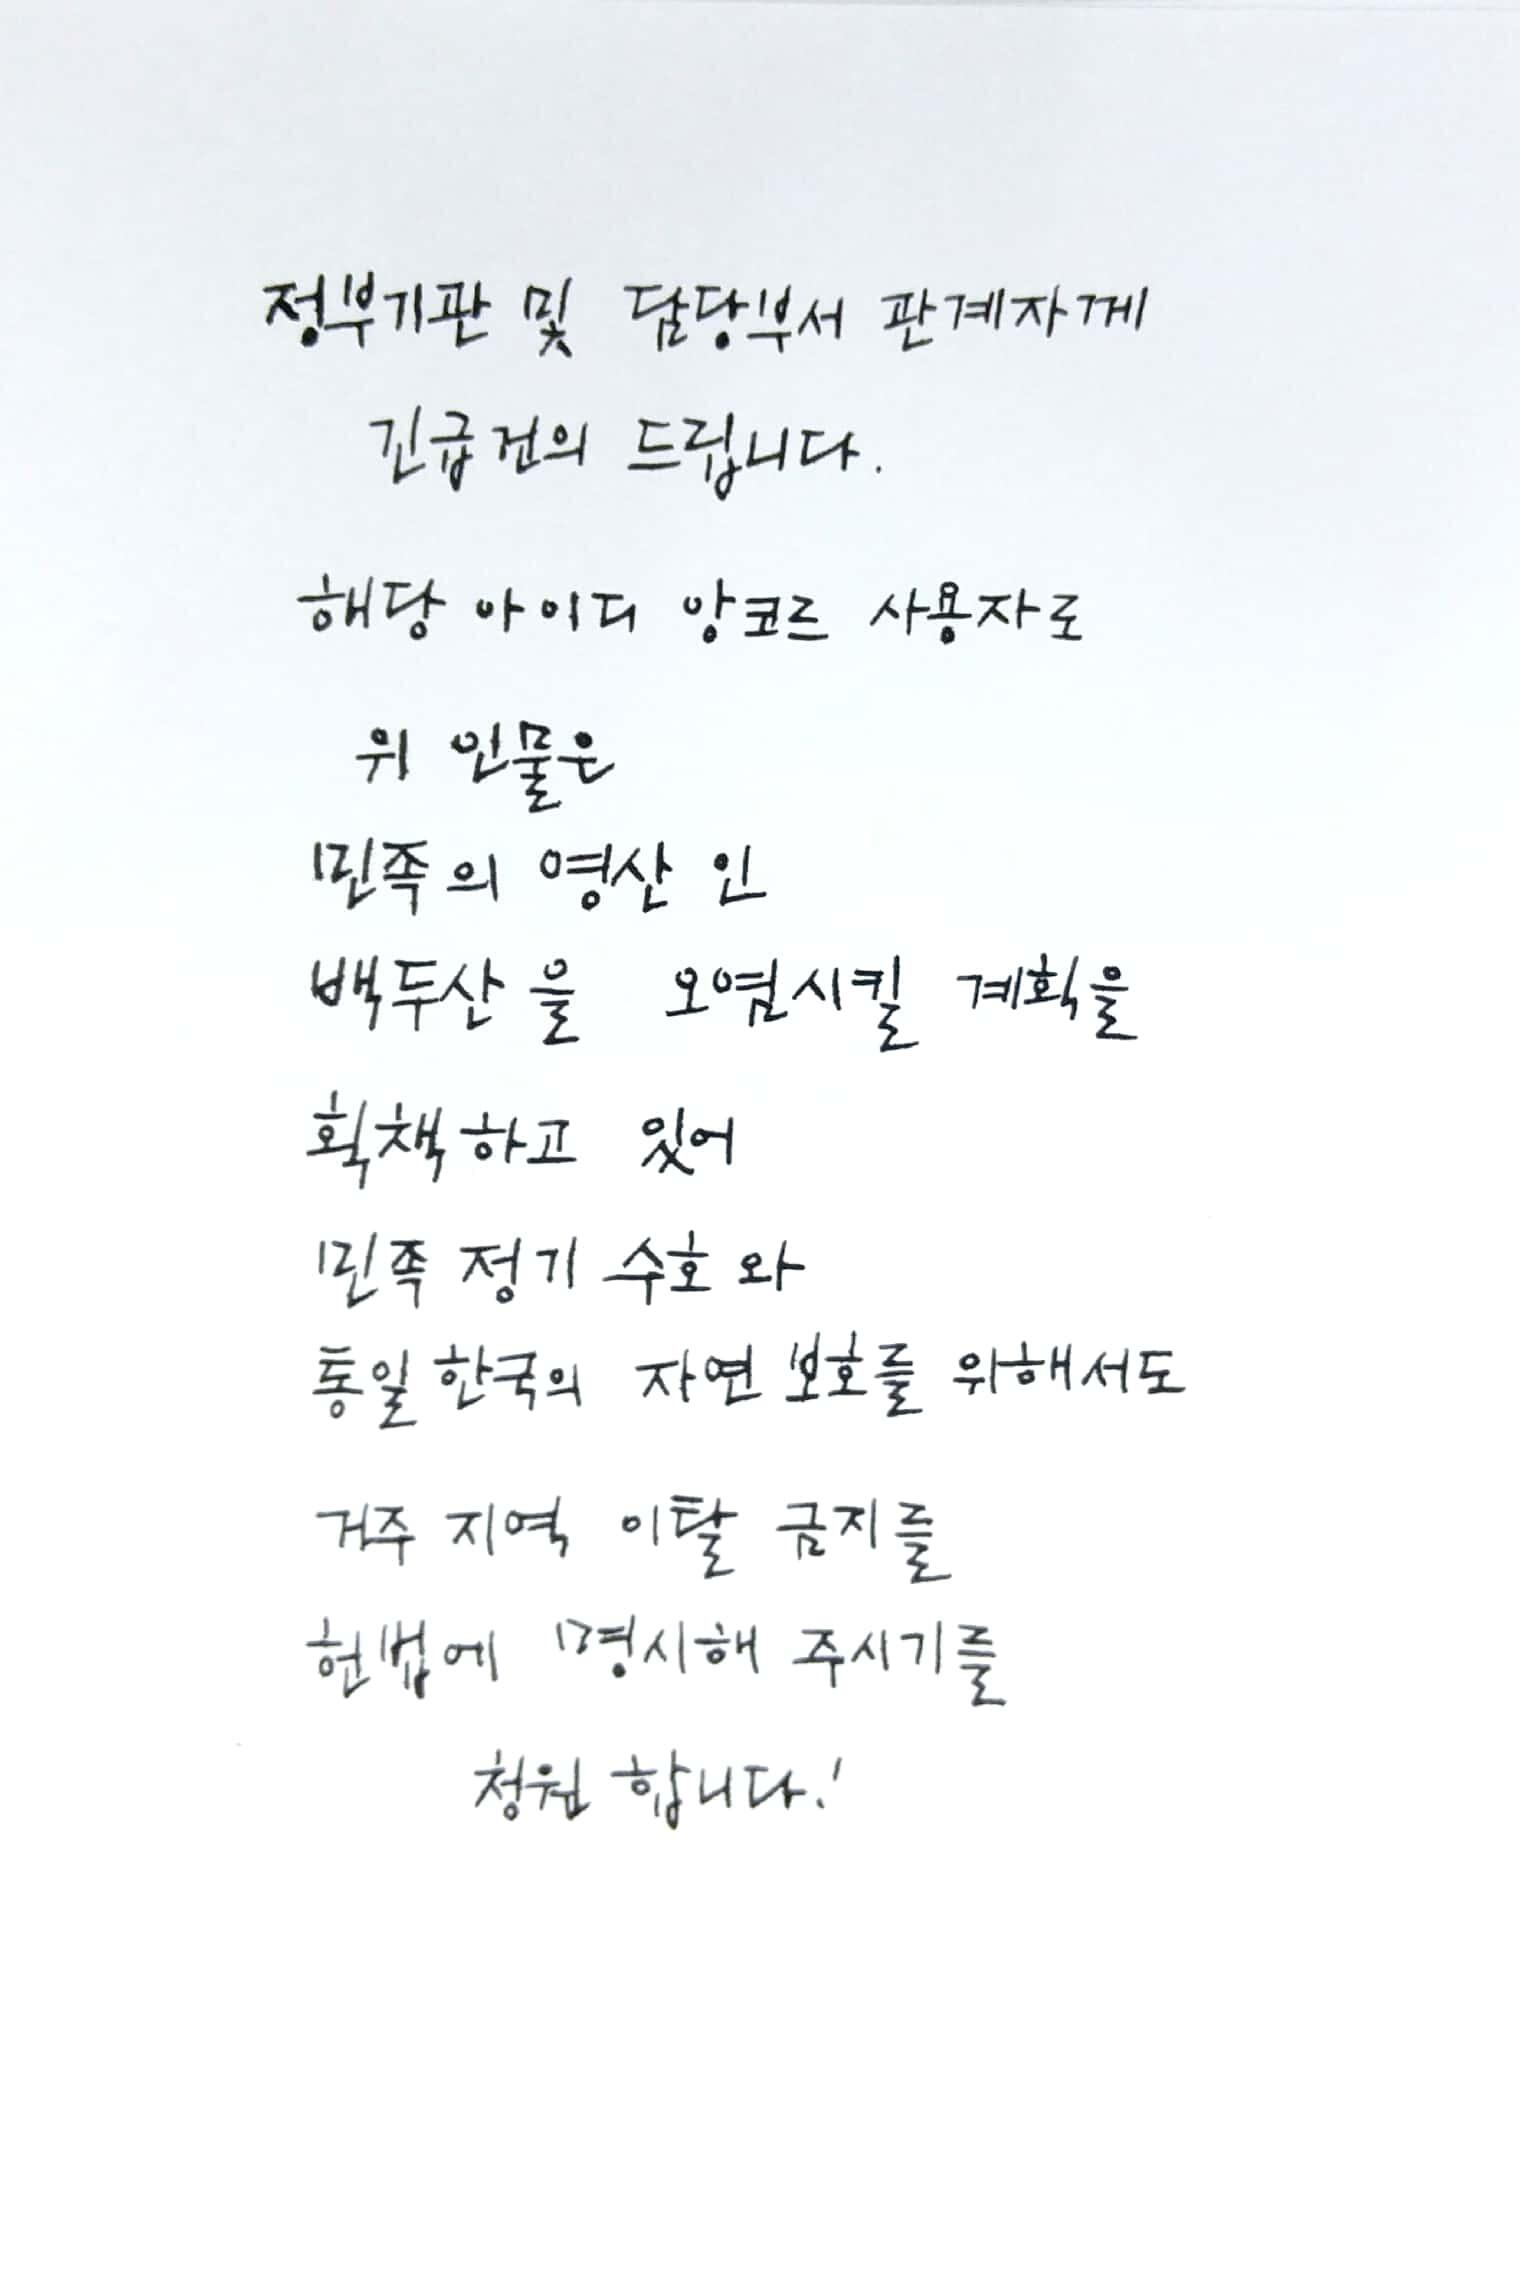 정부기관 및 담당부서 관계자께
긴급건의 드립니다.
해당 아이디 앙코르 사용자로
위 인물은
민족의 영산 인
백두산을 오염시킬 계획을
획책하고 있어
민족 정기 수호와
통일한국의 자연보호를 위해서도
거주 지역 이탈 금지를
헌법에 명시해 주시기를
청원 합니다.!